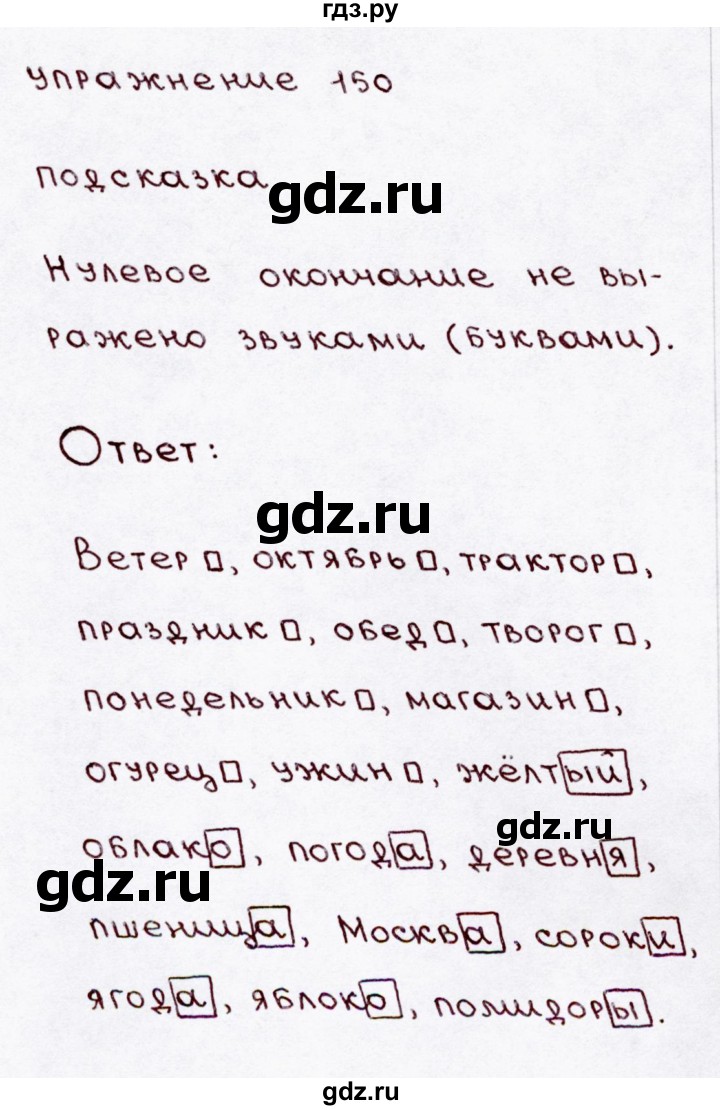 гдз.ру
упражнение 150
подсказка
gdz.ru
Нулевое окончание не вы-
ражено звуками (буквами).
Ответ:
gdz.ru
Ветер□, октябрь□, трактор□,
праздник□, обед□, творог□,
понедельник□, магазин□,
огурец□, ужин□, жёлтый,
gdz.ru
облако, погода, деревня,
gdz.ru
пшеница, Москва, сороки,
ягода, яблоко, помидоры.
gdz.ru